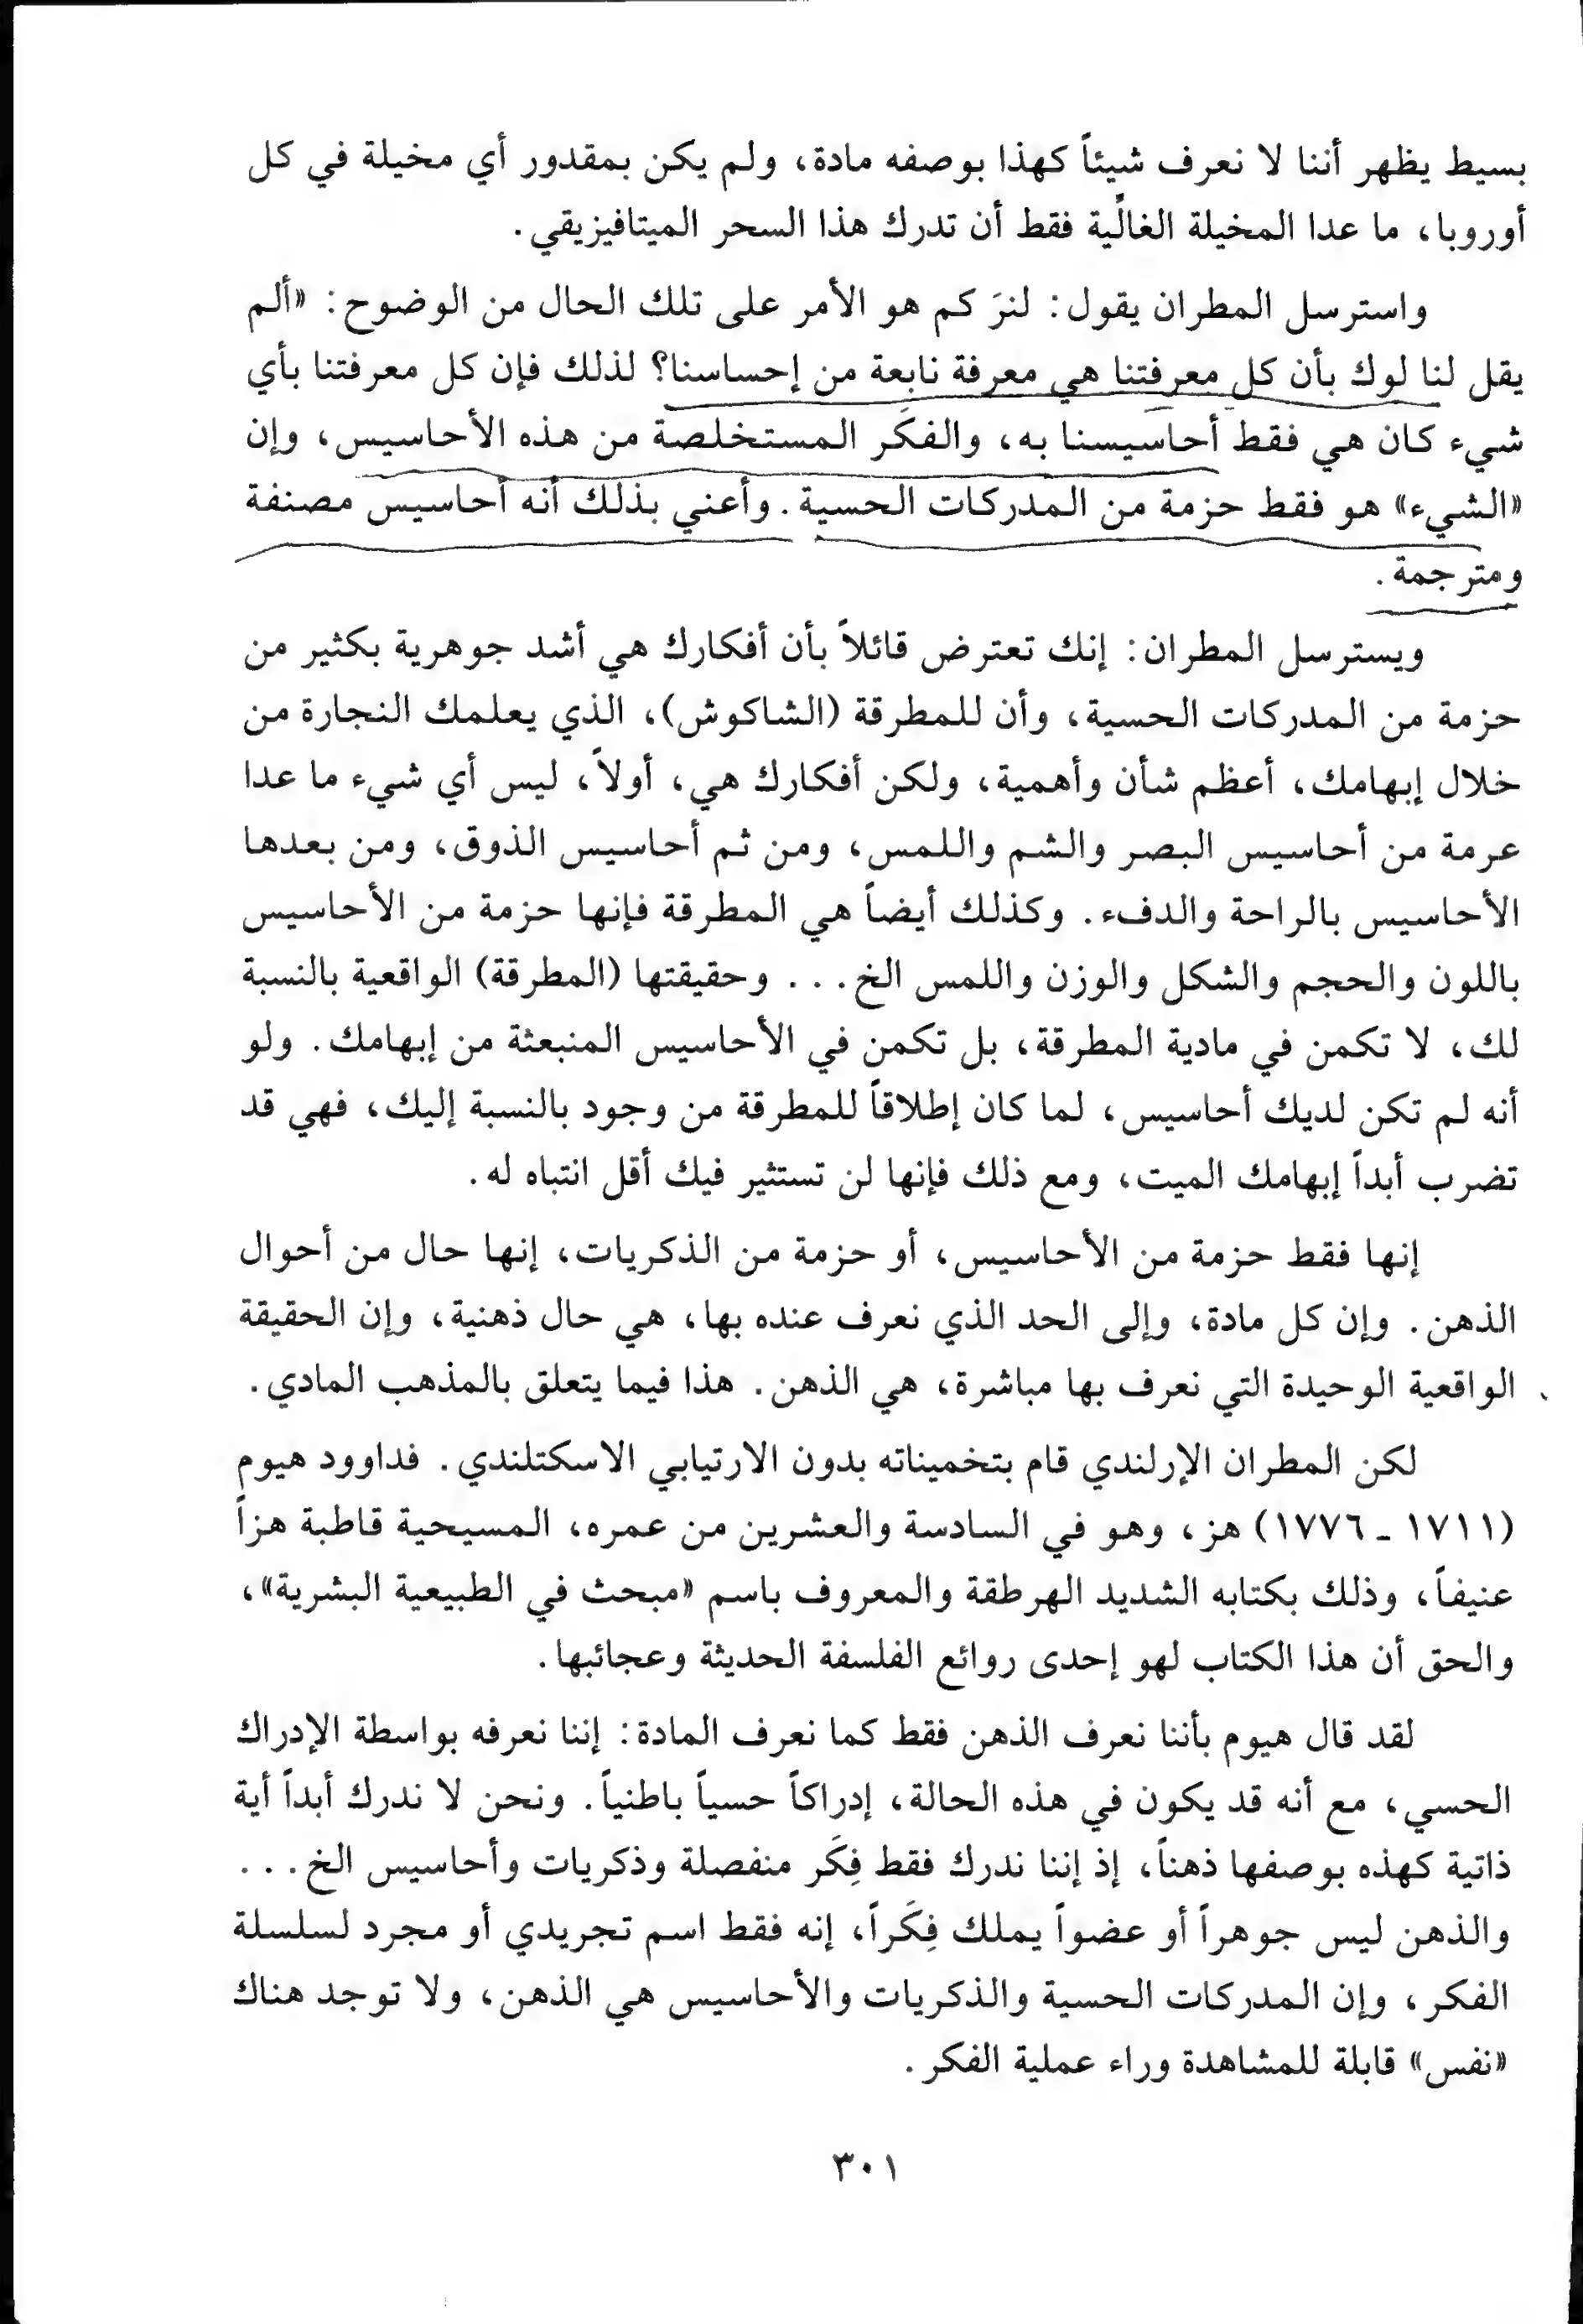 بسيط يظهر أننا لا نعرف شيئاً كهذا بوصفه مادة، ولم يكن بمقدور أي مخيلة في كل
أوروبا، ما عدا المخيلة الغالّية فقط أن تدرك هذا السحر الميتافيزيقي.
واسترسل المطران يقول: لنرَ كم هو الأمر على تلك الحال من الوضوح: «ألم
يقل لنا لوك بأن كل معرفتنا هي معرفة نابعة من إحساسنا؟ لذلك فإن كل معرفتنا بأي
شيء كان هي فقط أحاسيسنا به، والفكَر المستخلصة من هذه الأحاسيس، وإن
«الشيء» هو فقط حزمة من المدركات الحسية. وأعني بذلك أنه أحاسيس مصنفة
ومترجمة.
ويسترسل المطران: إنك تعترض قائلاً بأن أفكارك هي أشد جوهرية بكثير من
حزمة من المدركات الحسية، وأن للمطرقة (الشاكوش)، الذي يعلمك النجارة من
خلال إبهامك، أعظم شأن وأهمية، ولكن أفكارك هي، أولاً، ليس أي شيء ما عدا
عرمة من أحاسيس البصر والشم واللمس، ومن ثم أحاسيس الذوق، ومن بعدها
الأحاسيس بالراحة والدفء. وكذلك أيضاً هي المطرقة فإنها حزمة من الأحاسيس
باللون والحجم والشكل والوزن واللمس الخ... وحقيقتها (المطرقة) الواقعية بالنسبة
لك، لا تكمن في مادية المطرقة، بل تكمن في الأحاسيس المنبعثة من إبهامك. ولو
أنه لم تكن لديك أحاسيس، لما كان إطلاقاً للمطرقة من وجود بالنسبة إليك، فهي قد
تضرب أبداً إبهامك الميت، ومع ذلك فإنها لن تستثير فيك أقل انتباه له.
إنها فقط حزمة من الأحاسيس، أو حزمة من الذكريات، إنها حال من أحوال
الذهن. وإن كل مادة، وإلى الحد الذي نعرف عنده بها، هي حال ذهنية، وإن الحقيقة
الواقعية الوحيدة التي نعرف بها مباشرة، هي الذهن. هذا فيما يتعلق بالمذهب المادي.
لكن المطران الإرلندي قام بتخميناته بدون الارتيابي الاسكتلندي. فداوود هيوم
(١٧١١ - ١٧٧٦) هز، وهو في السادسة والعشرين من عمره، المسيحية قاطبة هزاً
عنيفاً، وذلك بكتابه الشديد الهرطقة والمعروف باسم «مبحث في الطبيعية البشرية»،
والحق أن هذا الكتاب لهو إحدى روائع الفلسفة الحديثة وعجائبها.
لقد قال هيوم بأننا نعرف الذهن فقط كما نعرف المادة: إننا نعرفه بواسطة الإدراك
الحسي، مع أنه قد يكون في هذه الحالة، إدراكاً حسياً باطنياً. ونحن لا ندرك أبداً أية
ذاتية كهذه بوصفها ذهناً، إذ إننا ندرك فقط فِكَر منفصلة وذكريات وأحاسيس الخ...
والذهن ليس جوهراً أو عضواً يملك فِكَراً، إنه فقط اسم تجريدي أو مجرد لسلسلة
الفكر، وإن المدركات الحسية والذكريات والأحاسيس هي الذهن، ولا توجد هناك
«نفس» قابلة للمشاهدة وراء عملية الفكر.
٣٠١